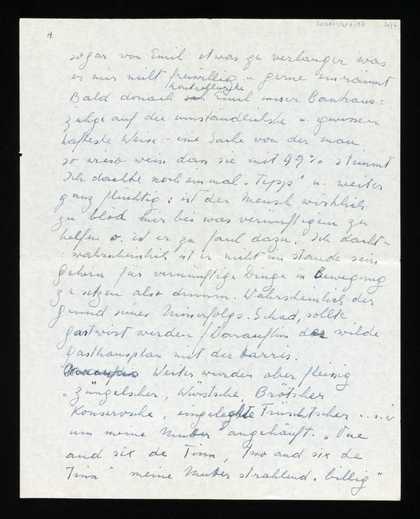 4.
sogar von Emil etwas zu verlangen was
er mir nicht freiwillig u. gerne einräumt
kontrollierte
Bald danach Emil unser Bankaus=
züge auf die umständlichste u. gewissen
hafteste Weise – eine Sache von der man
so wieso weiss dass sie mit 99% stimmt
Ich dachte noch einmal „Tepps" u. weiter
ganz flüchtig: ist der Mensch wirklich
zu blöd hier bei was vernünftigem zu
helfen o. ist er zu faul dazu. Ich dacht-
wahrscheinlich ist er nicht im stande sein
Gehirn für vernünftige Dinge in Bewegung
zu setzen also dumm. Wahrscheinlich der
Grund seines Misserfolgs. Schad, sollte
Gastwirt werden / Daraufhin der wilde
Gasthausplan mit der Harris.
Weiter wurden aber fleissig
„Züngelscher, Würstsche, Brötscher
Konservsche, eingelegte Früchtscher ...
um meine Mutter angehäuft. „One
and six de Tinn, Two and six de
Tinn" meine Mutter strahlend „billig"